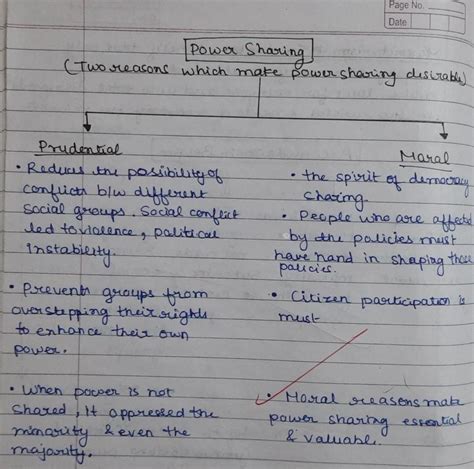 Page No.
Date
Power Sharing
(Two reasons which make power sharing desirable)
Prudential
• Reduces the possibility of
conflicts b/w different
Social groups. Social conflict
led to violence, political
instability.
• Prevents groups from
overstepping their rights
to enhance their own
power.
• When power is not
shared, it oppressed the
minority & even the
majority.
Moral
• the spirit of democracy
sharing.
• People who are affected
by the policies must
have hand in shaping those
policies.
• Citizen participation is
must
• Moral reasons make
power sharing essential
& valuable.